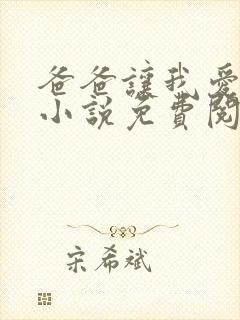 爸爸讓我愛
小說免費閱
宋希斌